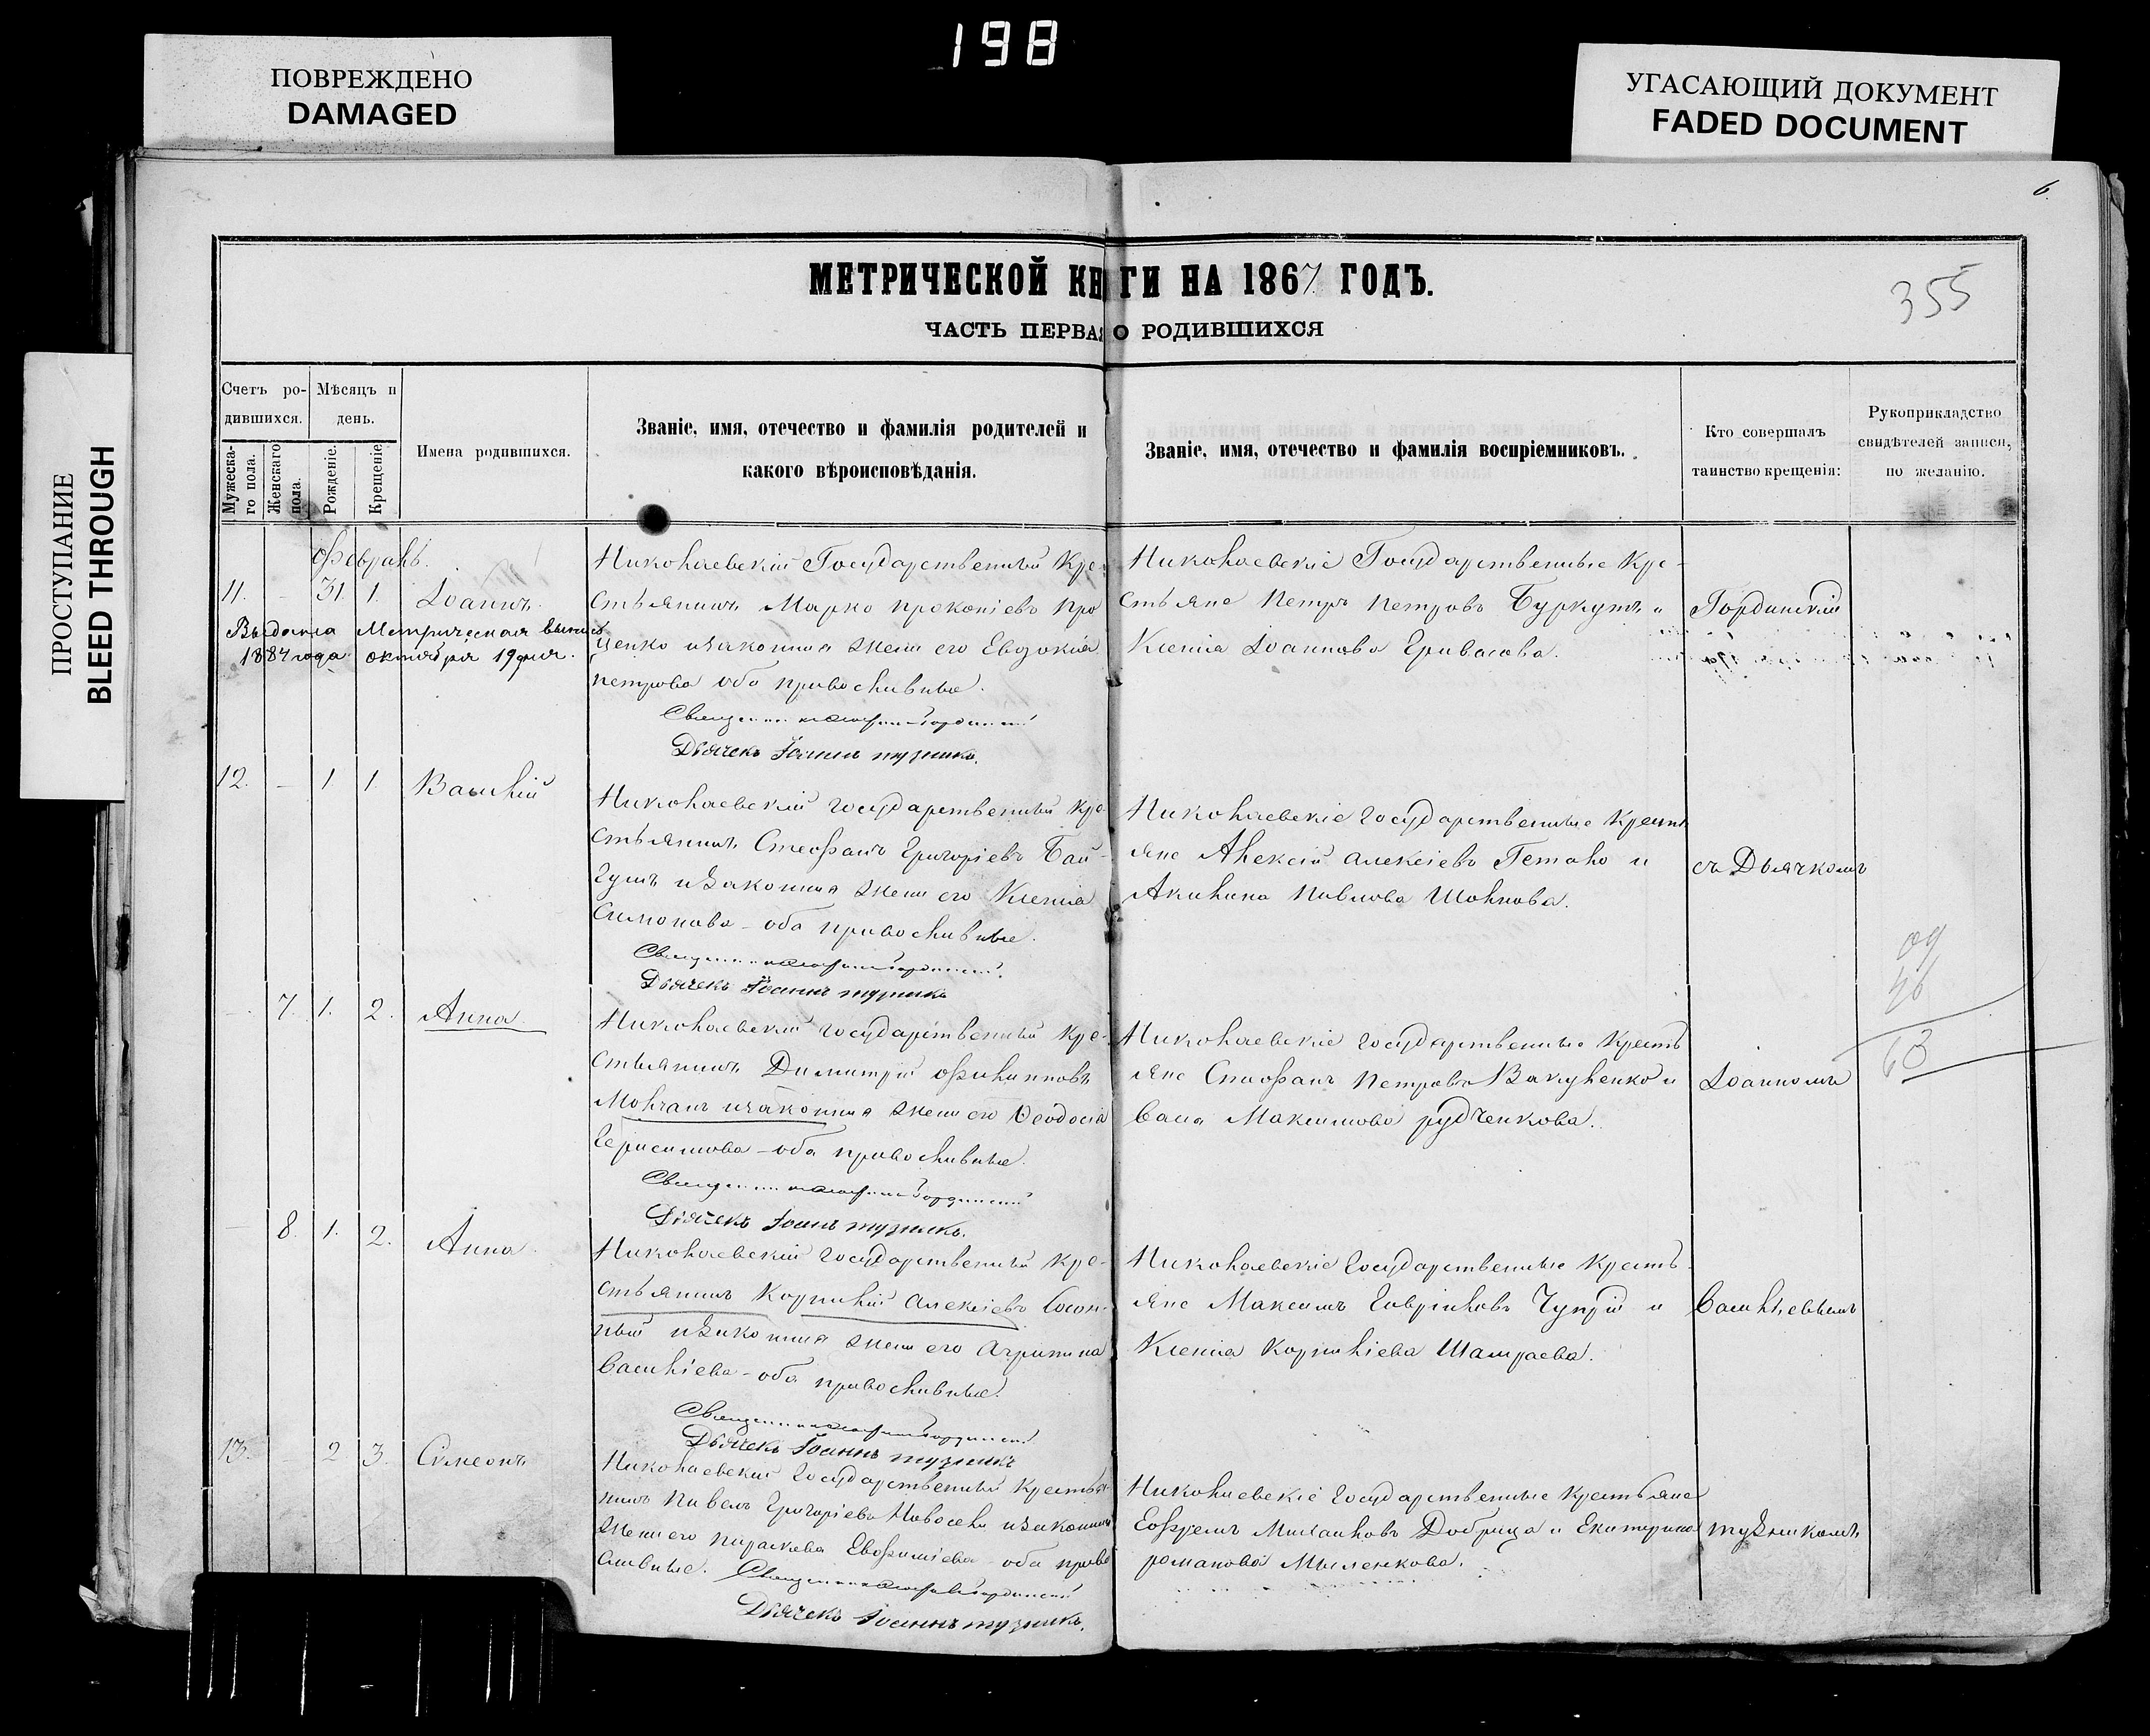 198
ПОВРЕЖДЕНО
DAMAGED
УГАСАЮЩИЙ ДОКУМЕНТ
FADED DOCUMENT
ПРОСТУПАНИЕ
BLEED THROUGH
6.
МЕТРИЧЕСКОЙ КНИГИ НА 1867 ГОДЪ.
355
ЧАСТЬ ПЕРВАЯ О РОДИВШИХСЯ
Счетъ ро-
дившихся.
Мужеска-
го пола.
Женскаго
пола.
Мѣсяцъ и
день.
Рожденіе.
Крещеніе
Имена родившихся.
Званіе, имя, отечество и фамилія родителей и
какого вѣроисповѣданія.
Званіе, имя, отечество и фамилія воспріемниковъ.
Кто совершалъ
таинство крещенія:
Рукоприкладство
свидѣтелей записи,
по желанію.
Февраль.
11. - 31. 1. Іоаннъ.
Выдана Метрическая выпись
1884 года октября 19 дня.
Николаевскій Государственный Кре-
стьянинъ Марко Прокопіевъ Про
ценко и законная жена его Евдокія
Петрова оба православные.
Дьячекъ Іоаннъ Музыка.
Николаевскіе Государственные Кре-
стьяне Петръ Петровъ Буркутъ и
Ксенія Іоаннова Гривасова.
Гординскій
12. - 1 1 Василій
Николаевскій государственный Кре-
стьянинъ Стефанъ Григоріевъ Бай-
гушъ и законная жена его Ксенія
Симонова - оба православные.
Дьячекъ Іоаннъ Музыка
Николаевскіе государственные Кресть
яне Алексій Алексіевъ Гетало и
Акилина Павлова Шолнова.
съ Дьячкомъ
- 7. 1. 2. Анна
Николаевскій государственный Кре-
стьянинъ Димитрій Филипповъ
Молчанъ и законная жена его Ѳеодосія
Герасимова - оба православные.
Дьячекъ Іоаннъ Музыка.
Николаевскіе государственные Кресть
яне Стефанъ Петровъ Вакуленко и
Васса Максимова Рудченкова.
Іоанномъ
09
46
63
- 8. 1. 2. Анна.
Николаевскій государственный Кре-
стьянинъ Корнилій Алексіевъ Сосон-
ный и законная жена его Агрипина
Василіева - оба православные.
Дьячекъ Іоаннъ Музыка
Николаевскіе Государственные Кресть-
яне Максимъ Гавріиловъ Чупрій и
Ксенія Корниліева Шамраева.
Василіевымъ
13. - 2 3. Сімеонъ
Николаевскій Государственный Крестья-
нинъ Павелъ Григоріевъ Новоселъ и законная
жена его Параскева Евфиміева оба право
славные.
Дьячекъ Іоаннъ Музыка.
Николаевскіе государственные Крестьяне
Ефремъ Михаиловъ Добрица и Екатерина
Романова Мыленкова.
Музыкомъ